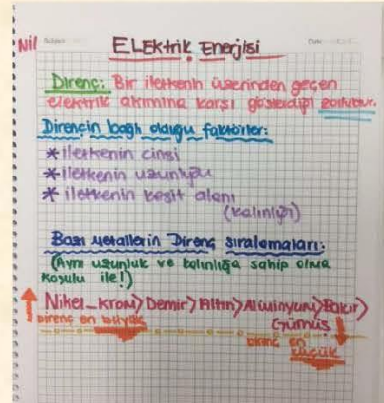 Nil
Elektrik Enerjisi
Direnç: Bir iletkenin üzerinden geçen
elektrik akımına karşı gösterdiği zorluktur.
Direncin bağlı olduğu faktörler:
*iletkenin cinsi
*iletkenin uzunluğu
*iletkenin kesit alanı
(kalınlığı)
Bazı metallerin Direnç sıralamaları:
(Aynı uzunluk ve kalınlığa sahip olma
koşulu ile!)
Nikel-krom>Demir>Altın>Alüminyum>Bakır>
Gümüş
Direnç en büyük
Direnç en
küçük